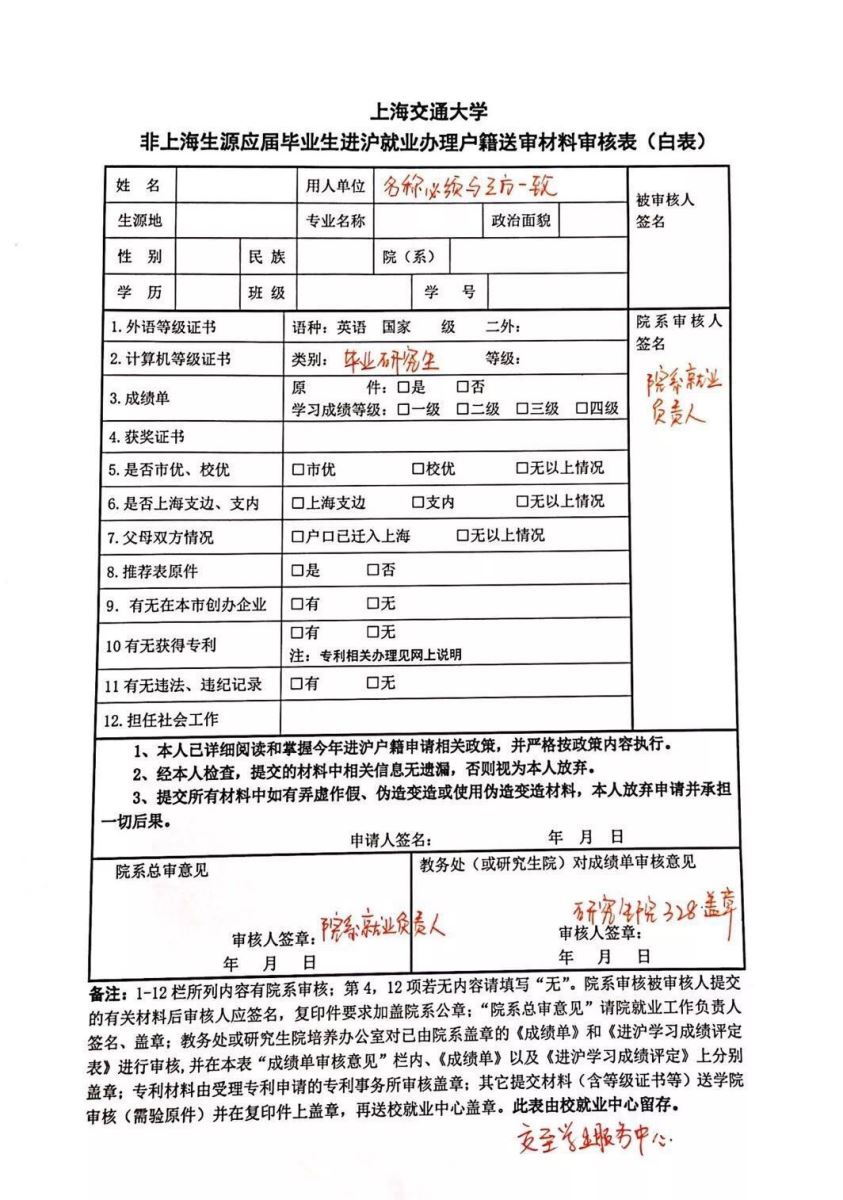 上海交通大学
非上海生源应届毕业生进沪就业办理户籍送审材料审核表（白表）
姓 名 用人单位 名称必须与三方一致 被审核人签名
生源地 专业名称 政治面貌
性 别 民 族 院（系）
学 历 班 级 学 号
1.外语等级证书 语种：英语 国家 级 二外： 院系审核人签名
2.计算机等级证书 类别：毕业研究生 等级： 院系就业负责人
3.成绩单 原 件：□是 □否
学习成绩等级：□一级 □二级 □三级 □四级
4.获奖证书
5.是否市优、校优 □市优 □校优 □无以上情况
6.是否上海支边、支内 □上海支边 □支内 □无以上情况
7.父母双方情况 □户口已迁入上海 □无以上情况
8.推荐表原件 □是 □否
9．有无在本市创办企业 □有 □无
10有无获得专利 □有 □无
注：专利相关办理见网上说明
11有无违法、违纪记录 □有 □无
12.担任社会工作
1、本人已详细阅读和掌握今年进沪户籍申请相关政策，并严格按政策内容执行。
2、经本人检查，提交的材料中相关信息无遗漏，否则视为本人放弃。
3、提交所有材料中如有弄虚作假、伪造变造或使用伪造变造材料，本人放弃申请并承担
一切后果。
申请人签名： 年 月 日
院系总审意见 教务处（或研究生院）对成绩单审核意见
审核人签章：院系就业负责人 研究生院328盖章
审核人签章：
年 月 日 年 月 日
备注：1-12栏所列内容有院系审核；第4，12项若无内容请填写“无”。院系审核被审核人提交
的有关材料后审核人应签名，复印件要求加盖院系公章；“院系总审意见”请院就业工作负责人
签名、盖章；教务处或研究生院培养办公室对已由院系盖章的《成绩单》和《进沪学习成绩评定
表》进行审核,并在本表“成绩单审核意见”栏内、《成绩单》以及《进沪学习成绩评定》上分别
盖章；专利材料由受理专利申请的专利事务所审核盖章；其它提交材料（含等级证书等）送学院
审核（需验原件）并在复印件上盖章，再送校就业中心盖章。此表由校就业中心留存。
交至学生服务中心.